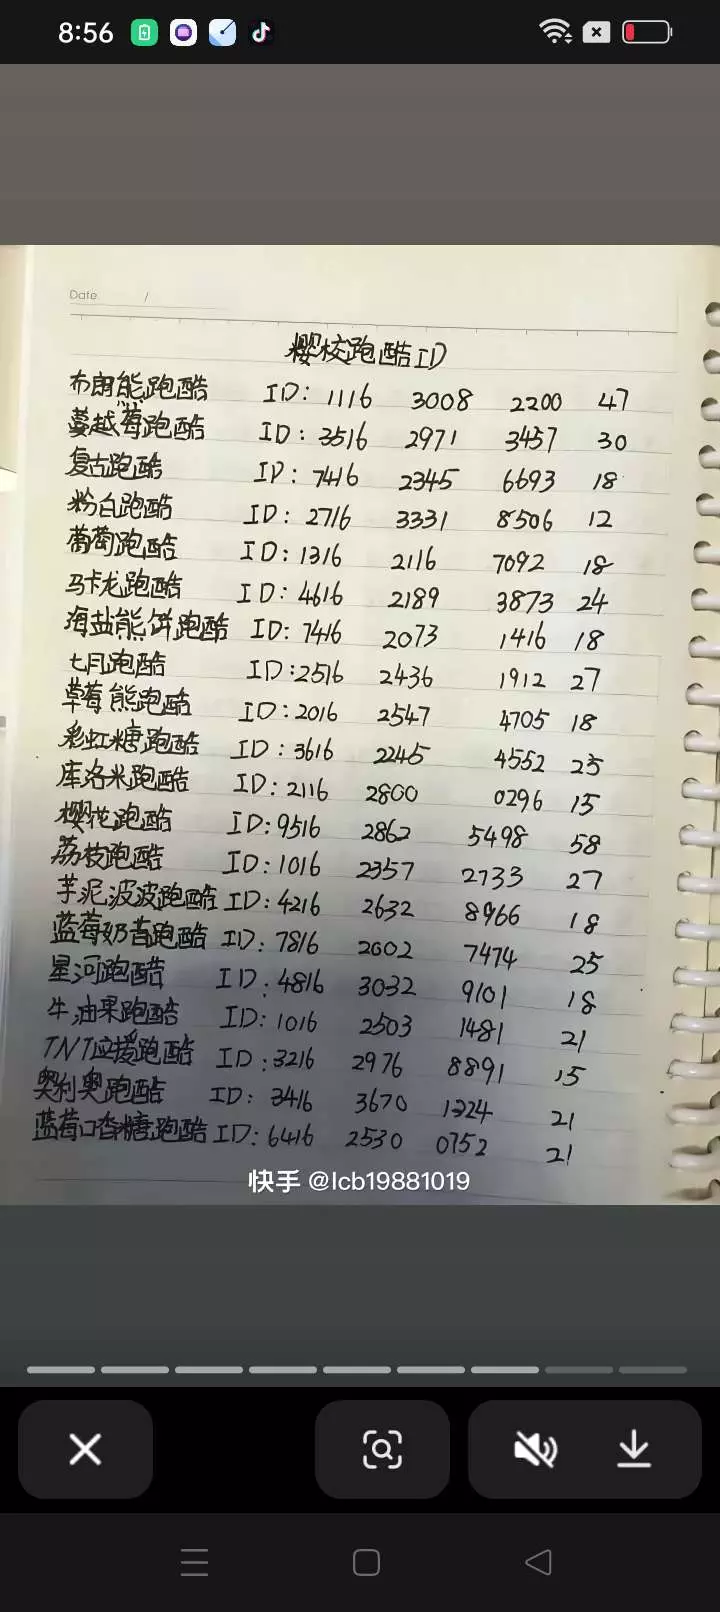 8:56
Date /
樱校跑酷ID
布朗熊跑酷 ID: 1116 3008 2200 47
蔓越莓跑酷 ID: 3516 2971 3457 30
复古跑酷 ID: 7416 2345 6693 18
粉白跑酷 ID: 2716 3331 8506 12
葡萄跑酷 ID: 1316 2116 7092 18
马卡龙跑酷 ID: 4616 2189 3873 24
海盐熊饼跑酷 ID: 7416 2073 1416 18
七月跑酷 ID: 2516 2436 1912 27
草莓熊跑酷 ID: 2016 2547 4705 18
彩虹糖跑酷 ID: 3616 2245 4552 25
库洛米跑酷 ID: 2116 2800 0296 15
樱花跑酷 ID: 9516 2862 5498 58
荔枝跑酷 ID: 1016 2357 2733 27
芋泥波波跑酷 ID: 4216 2632 8966 18
蓝莓奶昔跑酷 ID: 7816 2602 7474 25
星河跑酷 ID: 4816 3032 9101 18
牛油果跑酷 ID: 1016 2503 1481 21
TNT应援跑酷 ID: 3216 2976 8891 15
奥利奥跑酷 ID: 3416 3670 1324 21
蓝莓口香糖跑酷 ID: 6416 2530 0752 21
快手 @lcb19881019